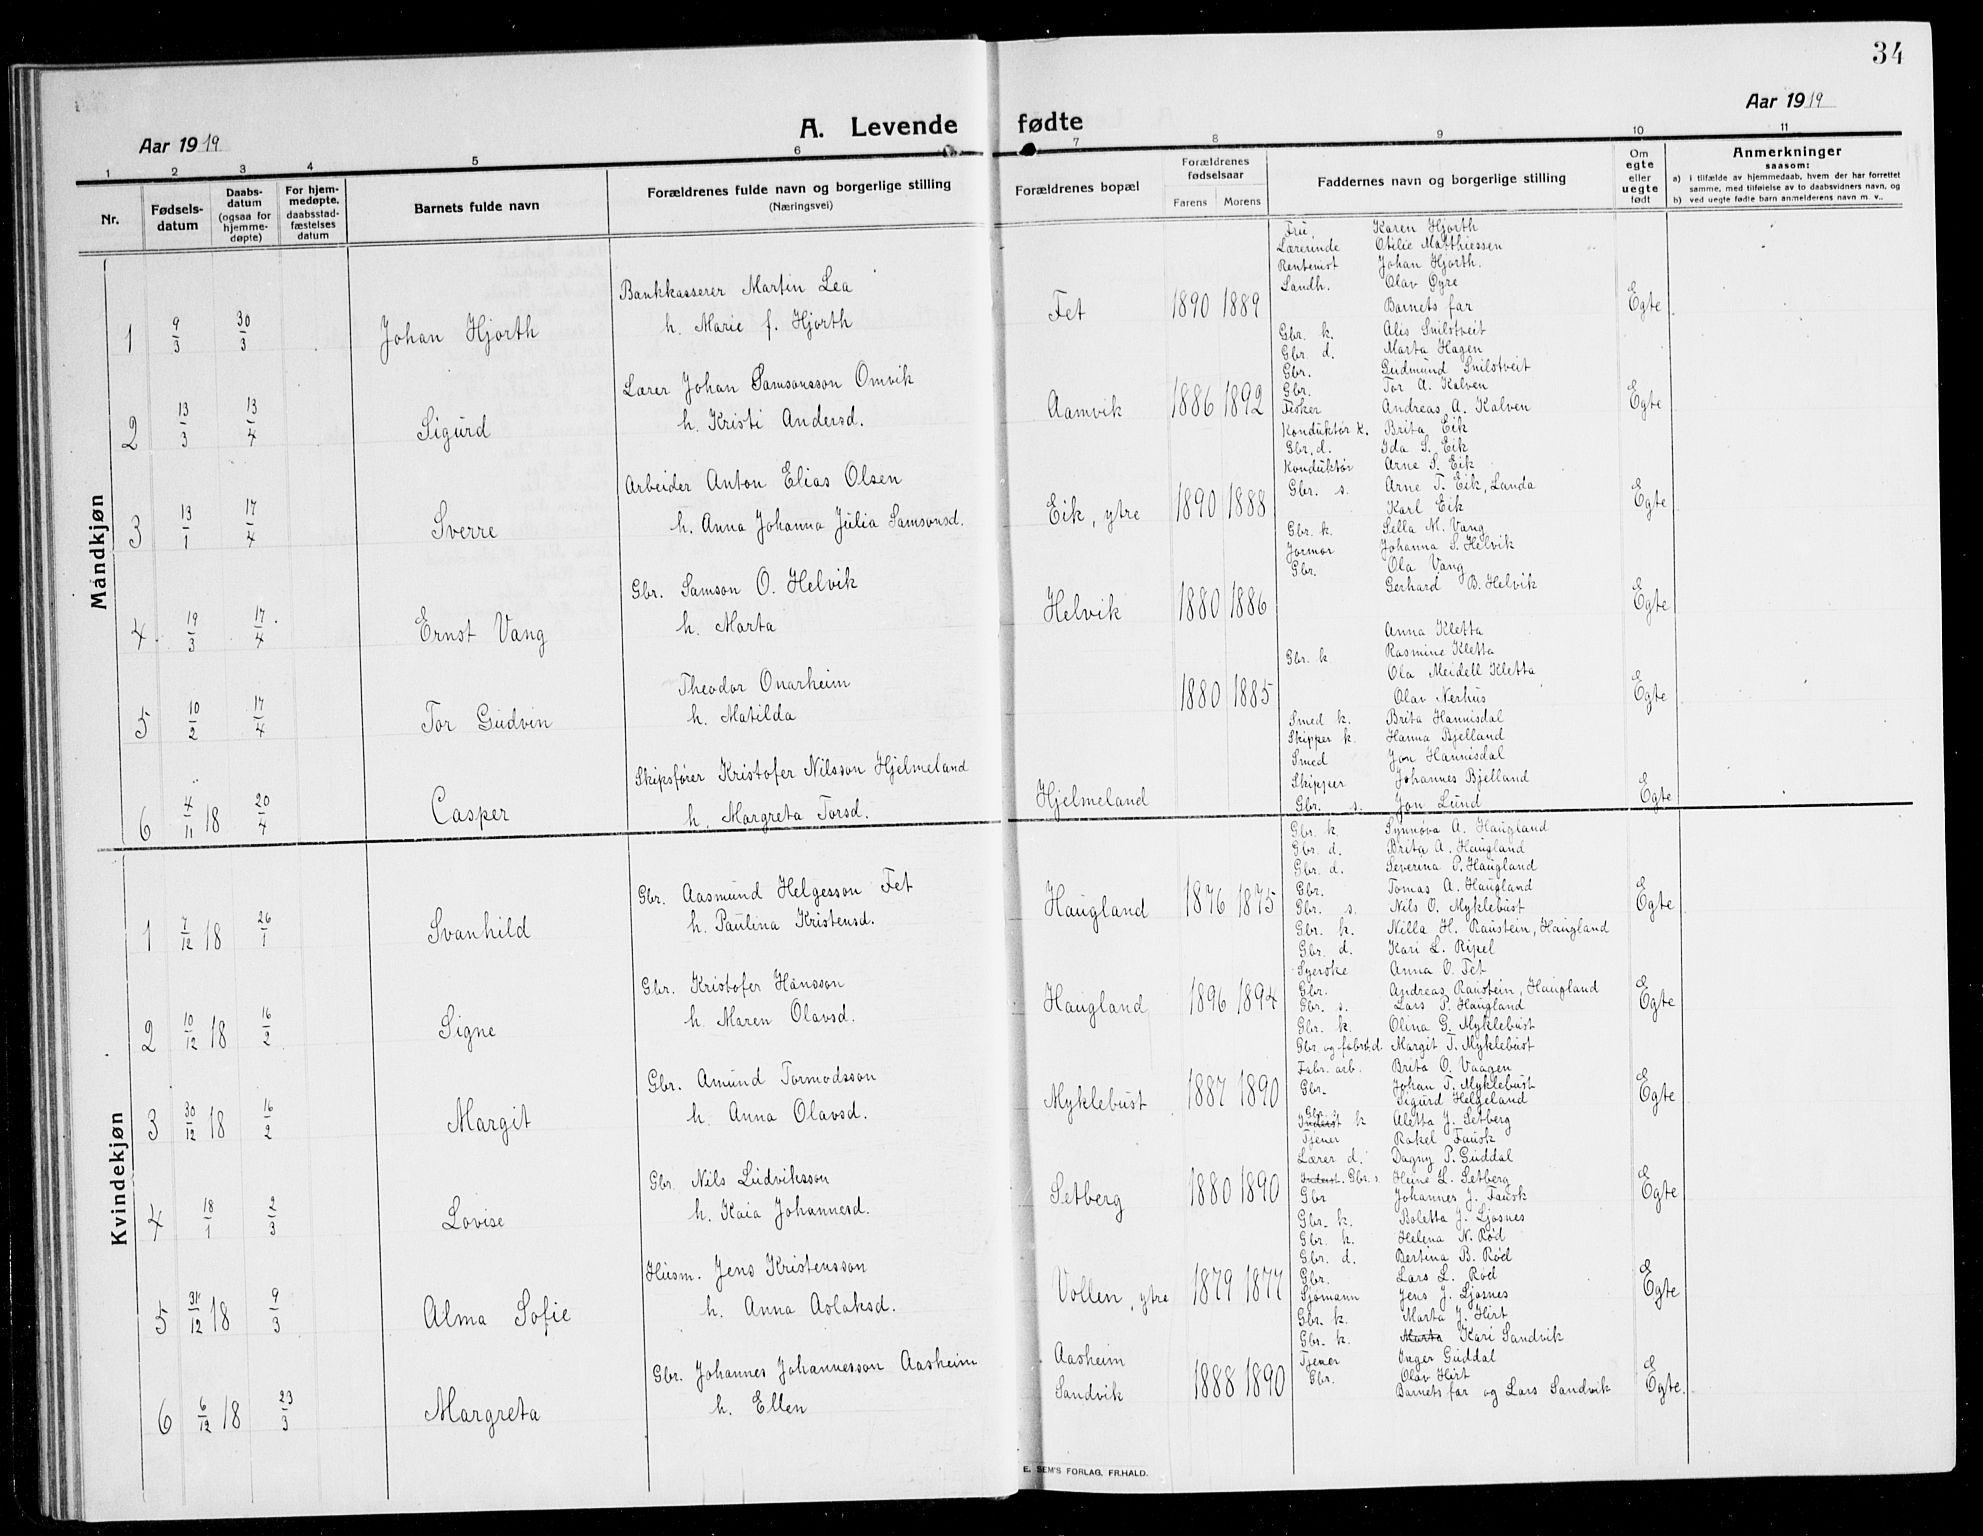 34
Aar 1919
A. Levende fødte
Aar 1919
1 2 3 4 5 6 7 8 9 10 11
Nr.
Fødsels-
datum
Daabs-
datum
(ogsaa for
hjemme-
døpte)
For hjem-
medøpte,
daabsstad-
fæstelses
datum
Barnets fulde navn
Forældrenes fulde navn og borgerlige stilling
(Næringsvei)
Forældrenes bopæl
Forældrenes
fødselsaar
Farens Morens
Faddernes navn og borgerlige stilling
Om
egte
eller
uegte
født
Anmerkninger
saasom:
a) i tilfælde av hjemmedaab, hvem der har forrettet
samme, med tilføielse av to daabsvidners navn, og
b) ved uegte fødte barn anmelderens navn m. v..
Mandkjøn
1 9/3 30/3 Johan Hjorth
Bankkasserer Martin Lea
h. Marie f. Hjorth
Fet 1890 1889
Fru, Karen Hjorth
Lærerinde Otilie Matthiessen
Rentenist Johan Hjorth.
Landh. Olav Øyre
Barnets far
Egte
2 13/3 13/4 Sigurd
Lærer Johan Samsonsson Omvik
h. Kristi Andersd.
Aamvik 1886 1892
Gbr. k. Alis Snilstveit
Gbr. d. Marta Hagen
Gbr. Gudmund Snilstveit
Gbr. Tor A. Kalven
Fisker Andreas A. Kalven
Egte
3 13/1 17/4 Sverre
Arbeider Anton Elias Olsen
h. Anna Johanna Julia Samsonsd.
Eik, ytre 1890 1888
Konduktør k. Brita Eik
Gbr. d. Ida S. Eik
Konduktør Arne S. Eik
Gbr. s. Arne T. Eik, Landa
Karl Eik
Egte
4 19/3 17/4 Ernst Vang
Gbr. Samson O. Helvik
h. Marta
Helvik 1880 1886
Gbr. k. Sella M. Vang
Jormor Johanna S. Helvik
Gbr. Ola Vang
Gerhard B. Helvik
Egte
5 10/2 17/4 Tor Gudvin
Theodor Onarheim
h. Matilda
1880 1885
Anna Kletta
Gbr. k Rasmine Kletta
Ola Meidell Kletta
Olav Nerhus
Egte
6 4/11 18 20/4 Casper
Skipsfører Kristofer Nilsson Hjelmeland
h. Margreta Torsd.
Hjelmeland
Smed k. Brita Hannisdal
Skipper k. Hanna Bjelland
Smed Jon Hannisdal
Skipper Johannes Bjelland
Gbr. s. Jon Lund
Egte
Kvindekjøn
1 7/12 18 26/1 Svanhild
Gbr. Aasmund Helgesson Fet
h. Paulina Kristensd.
Haugland 1876 1875
Gbr. k. Synnøva A. Haugland
Gbr. d. Brita A. Haugland
Gbr. d. Severina P. Haugland
Gbr. Tomas A. Haugland
Gbr. s. Nils O. Myklebust
Egte
2 10/12 18 16/2 Signe
Gbr. Kristofer Hansson
h. Maren Olavsd.
Haugland 1896 1894
Gbr. k. Nilla H. Raustein, Haugland
Gbr. d. Kari L. Ripel
Syerske Anna O. Fet
Gbr. Andreas Raustein, Haugland
Gbr. s. Lars P. Haugland
Egte
3 30/12 18 16/2 Margit
Gbr. Amund Tormodsson
h. Anna Olavsd.
Myklebust 1887 1890
Gbr. k. Olina G. Myklebust
Gbr. og fabrst. d. Margit T. Myklebust
Fabr. arb. Brita O. Vaagen
Gbr. Johan T. Myklebust
Sigurd Helgeland
Egte
4 18/1 2/3 Lovise
Gbr. Nils Ludviksson
h. Kaia Johannesd.
Setberg 1880 1890
Gbr. k Aletta J. Setberg
Tjener Rakel Fausk
Lærer d. Dagny P. Guddal
Gbr. s. Heine L. Setberg
Gbr Johannes J. Fausk
Egte
5 31/12 18 9/3 Alma Sofie
Husm. Jens Kristensson
h. Anna Aslaksd.
Vollen, ytre 1879 1877
Gbr. k. Boletta J. Ljosnes
Gbr. k. Helena N. Rød
Gbr. d. Bertina B. Rød
Gbr. Lars L. Rød
Sjømann Jens J. Ljosnes
Egte
6 6/12 18 23/3 Margreta
Gbr. Johannes Johannesson Aasheim
h. Ellen
Aasheim
Sandvik 1888 1890
Gbr. k. Marta J. Hirt
Gbr. k. Marta Kari Sandvik
Tjener Inger Guddal
Gbr. Olav Hirt
Barnets far og Lars Sandvik
Egte.
E. SEM'S FORLAG, FR.HALD.